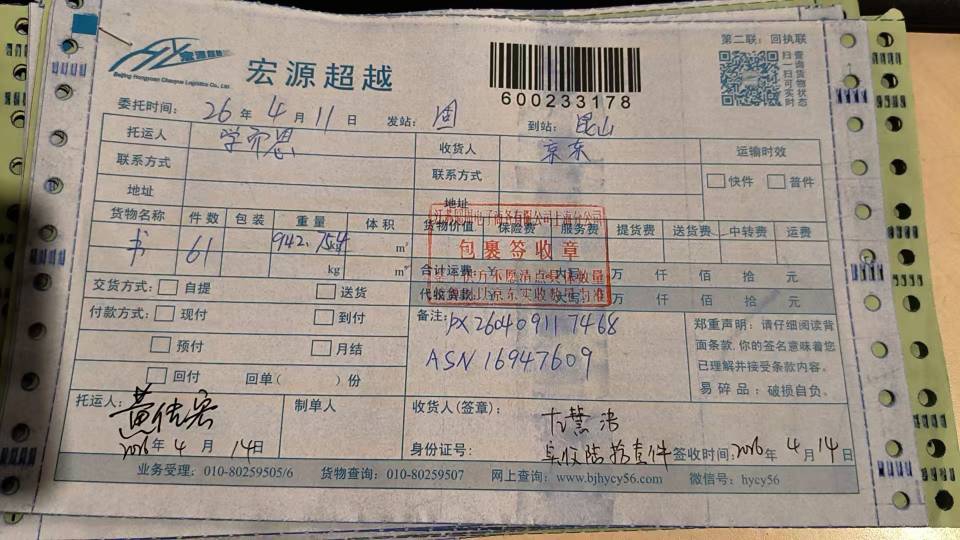 第二联：回执联
宏源超越
Beijing Hongyuan Chaoyue Logistics Co., Ltd.
宏源超越
600233178
扫一扫可实时
查询货物状态
委托时间：26年4月11日 发站： 到站：昆山
托运人 学而思 收货人 京东 运输时效
联系方式 联系方式 快件 普件
地址 地址
货物名称 件数 包装 重量 体积 货物价值 保险费 服务费 提货费 送货费 中转费 运费
书 61 942.754kg m³
kg m³
合计运费：¥ 大写 万 仟 佰 拾 元
代收货款：¥ 大写 万 仟 佰 拾 元
包裹签收章
交货方式： 自提 送货
付款方式： 现付 到付
预付 月结
回付 回单（ ）份
备注：PX260409117468
ASN16947609
郑重声明：请仔细阅读背
面条款,你的签名意味着您
已理解并接受条款内容。
易碎品：破损自负。
托运人：
2026年4月14日
制单人
收货人(签章)：
身份证号： 实收陆拾壹件 签收时间：2026年4月14日
业务受理：010-80259505/6 货物查询：010-80259507 网上查询：www.bjhycy56.com 微信号：hycy56